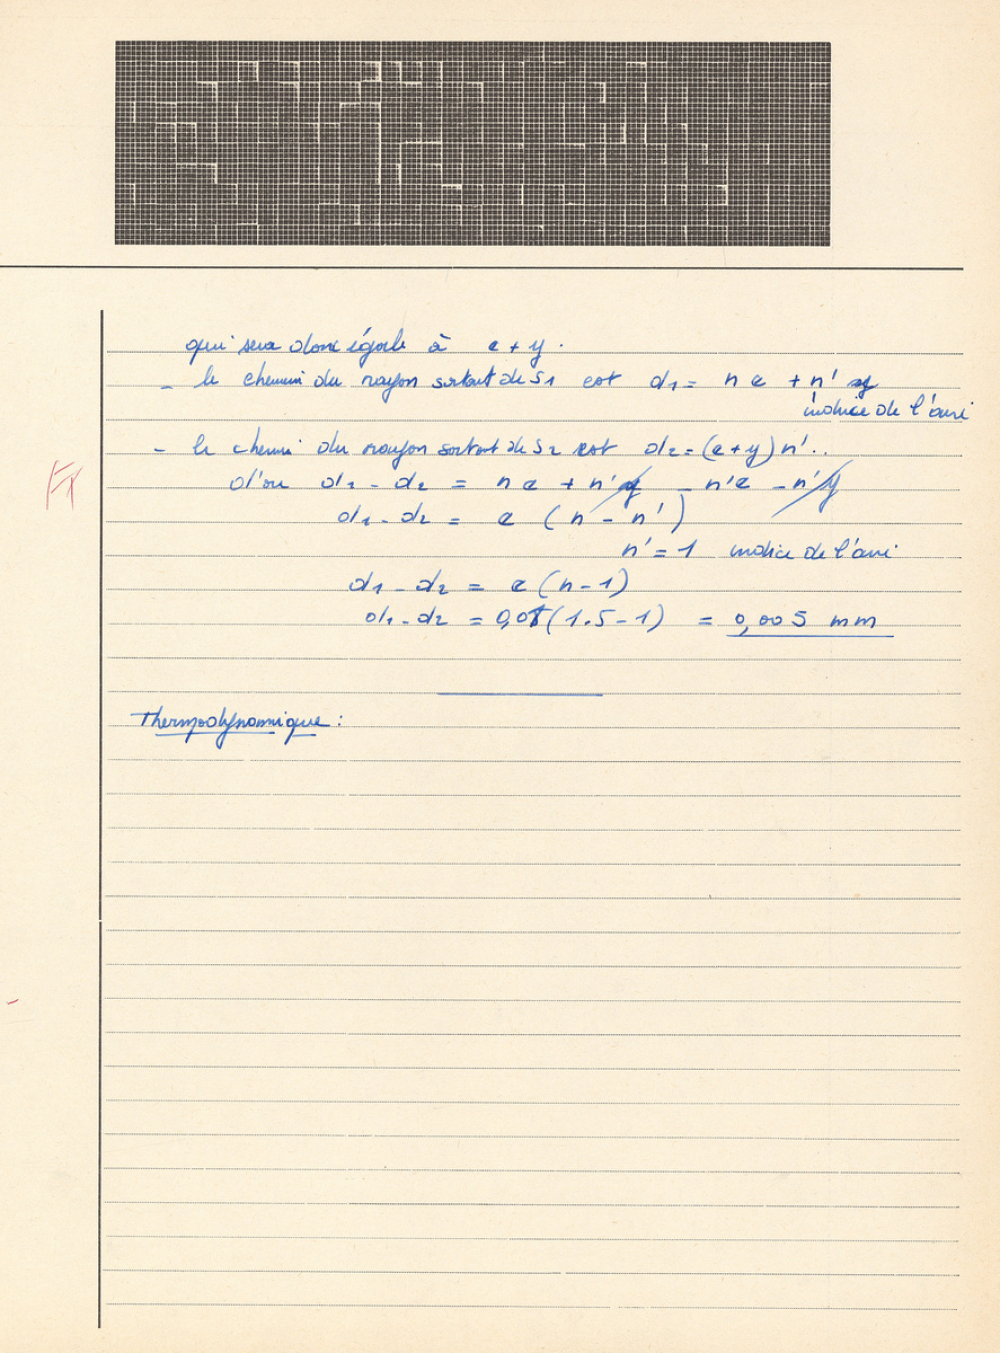 qui sera donc égale à e + y.
- le chemin du rayon sortant de S1 est d1 = n e + n' y
indice de l'air
- le chemin du rayon sortant de S2 est d2 = (e + y) n'..
d'où d1 - d2 = n e + n' y - n'e - n'y
d1 - d2 = e (n - n')
n' = 1 indice de l'air
d1 - d2 = e (n - 1)
d1 - d2 = 0,01 (1.5 - 1) = 0,005 mm
Thermodynamique :